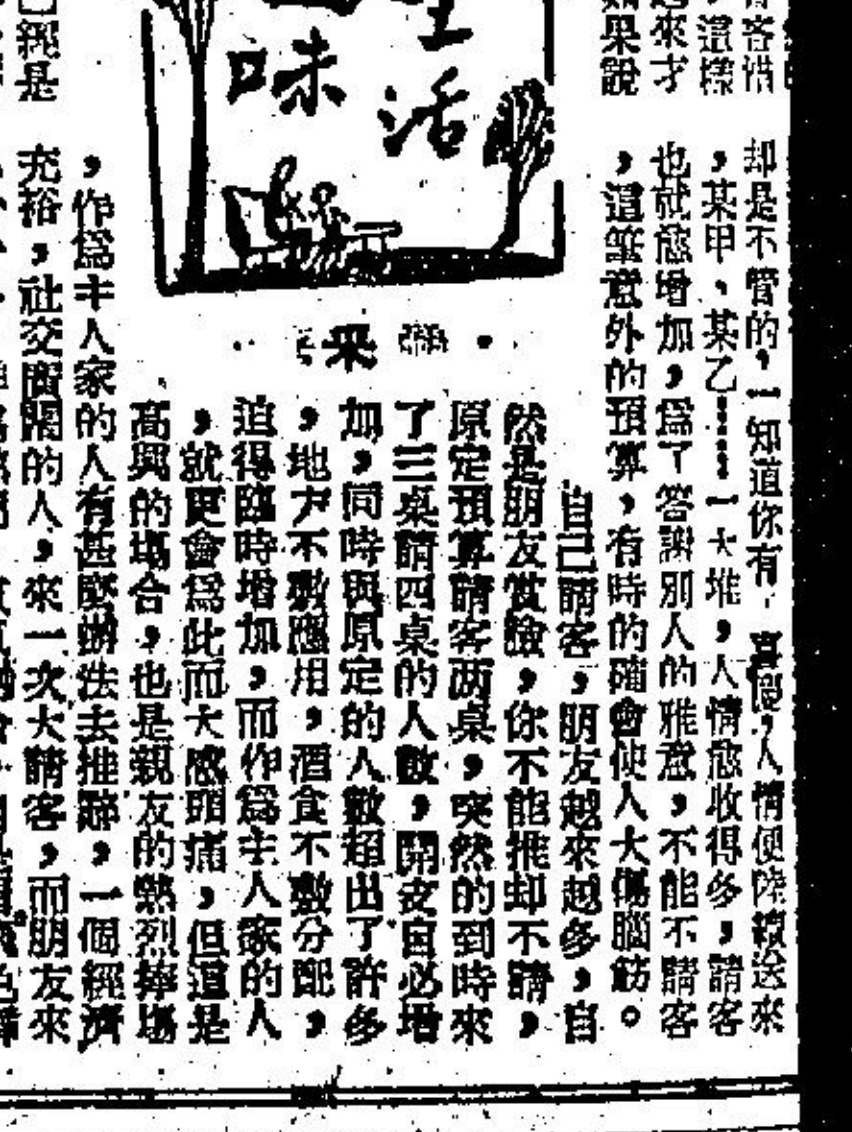 客惜
却是不管的，一知道你有喜慶，人情便陸續送來
，這樣
，某甲、某乙……一大堆，人情愈收得多，請客
來才
也就愈增加，為了答謝別人的雅意，不能不請客
如果說
，這筆意外的預算，有時的確會使人大傷腦筋。
生活
味
采
自己請客，朋友越來越多，自
然是朋友賞臉，你不能推却不請，
原定預算請客兩桌，突然的到時來
了三桌請四桌的人數，開支自必增
加，同時與原定的人數超出了許多
，地方不敷應用，酒食不敷分配，
迫得臨時增加，而作為主人家的人
，就更會為此而大感頭痛，但這是
高興的場合，也是親友的熱烈捧場
，作為主人家的人有甚麼辦法去推辭，一個經濟
經是
充裕，社交廣闊的人，來一次大請客，而朋友來